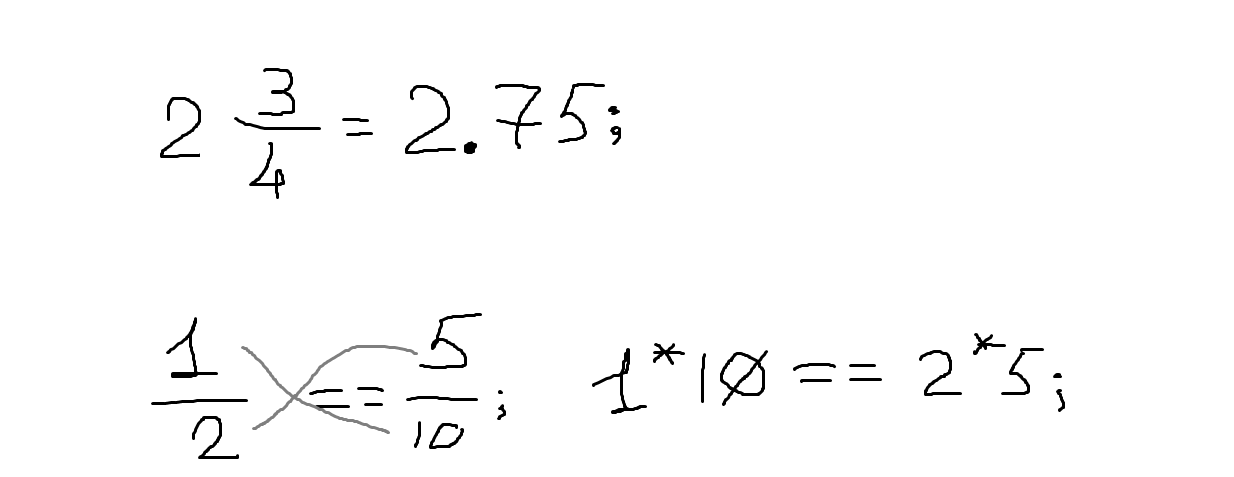 2 3/4 = 2.75;
1/2 == 5/10; 1*10 == 2*5;